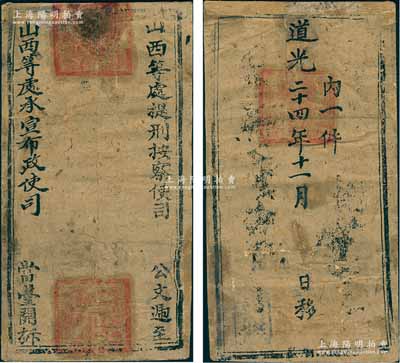 上海陽明拍賣
山西等處提刑按察使司
公文遞至
山西等處承宣布政使司
當堂開拆
上海陽明拍賣
內一件
道光二十四年十一月
日移